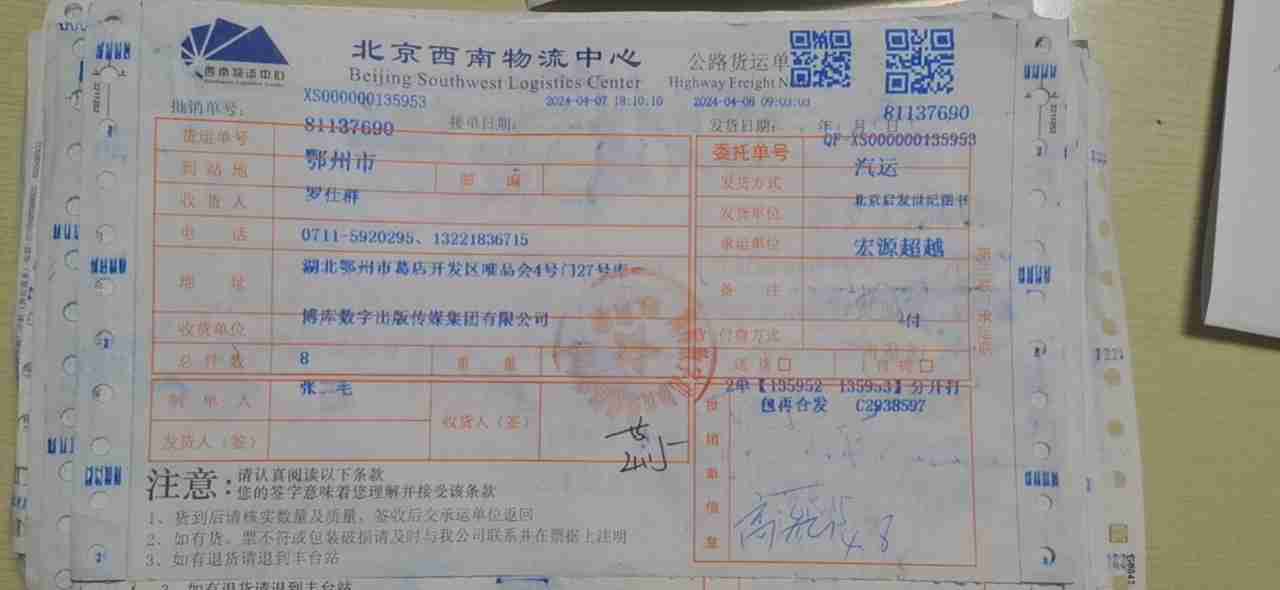 西南物流中心
北京西南物流中心
公路货运单
Beijing Southwest Logistics Center
Highway Freight N
批销单号:
XS000000135953
接单日期:
2024-04-07 18:10:10
2024-04-08 09:03:03
发货日期: 年 月 日
81137690
货运单号
81137690
委托单号
QF-XS000000135953
到站地
鄂州市
邮 编
发货方式
汽运
收货人
罗仕群
发货单位
北京启发世纪图书
电 话
0711-5920295、13221836715
承运单位
宏源超越
地 址
湖北鄂州市葛店开发区唯品会4号门27号库
备 注
收货单位
博库数字出版传媒集团有限公司
付费方式
付
总件数
8
重 量
送货
制单人
张二毛
收货人(签)
发货人(签)
2单【135952 135953】分开打
包再合发 C2938597
注意:
请认真阅读以下条款
您的签字意味着您理解并接受该条款
1、货到后请核实数量及质量,签收后交承运单位返回
2、如有货、票不符或包装破损请及时与我公司联系并在票据上注明
3、如有退货请退到丰台站
3、如有退货请退到丰台站